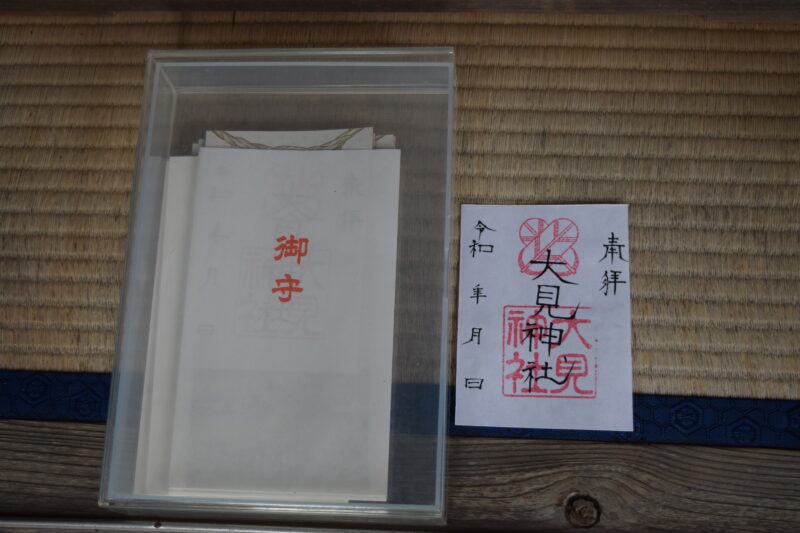 御守
奉拝
大見神社
大見
神社
令和 年 月 日